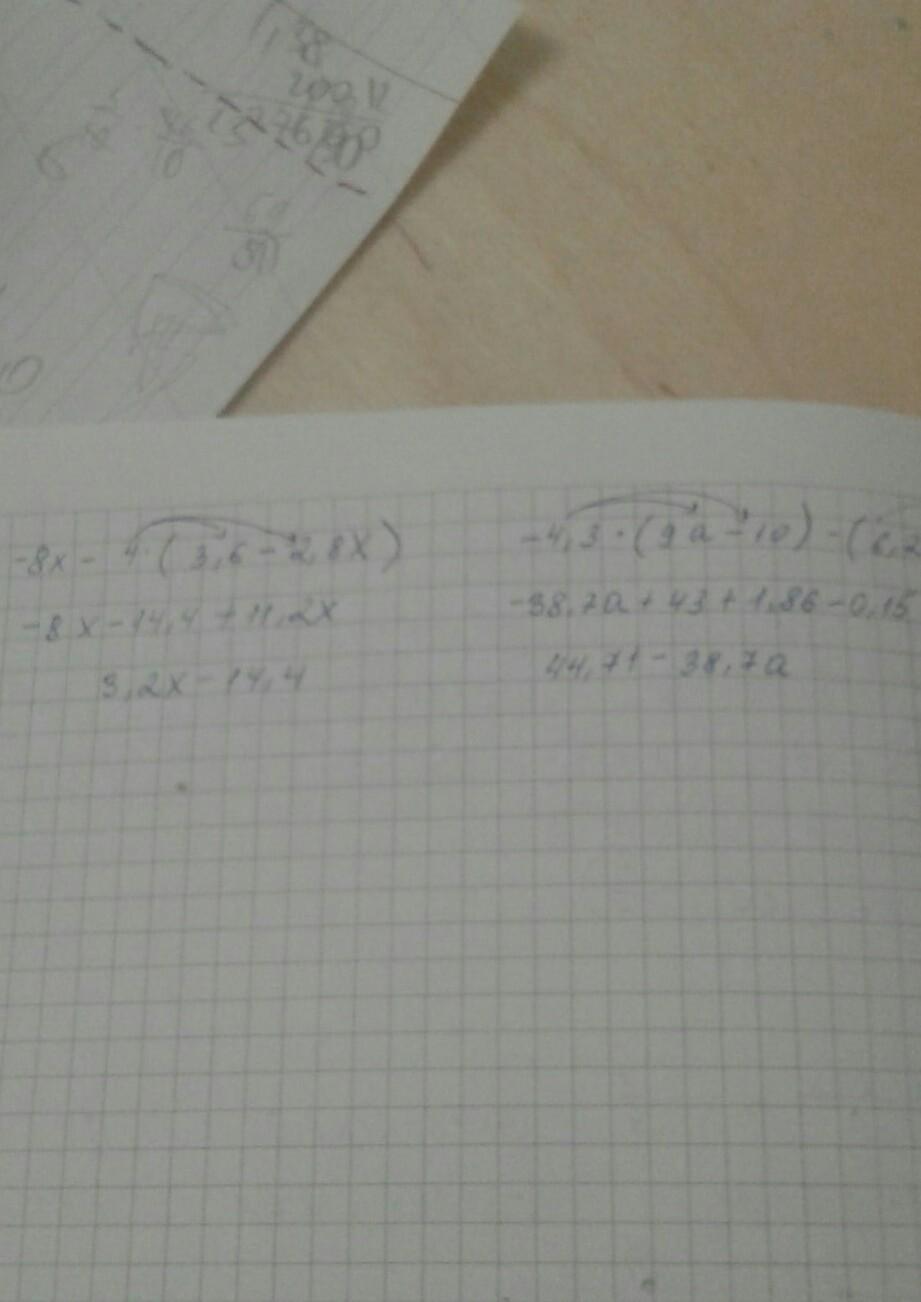 1,38
200,11
10
-8x - 4·(3,6 - 2,8x)
-8x - 14,4 + 11,2x
3,2x - 14,4
-4,3·(9a - 10) - (6,2
-38,7a + 43 + 1,86 - 0,15
44,71 - 38,7a